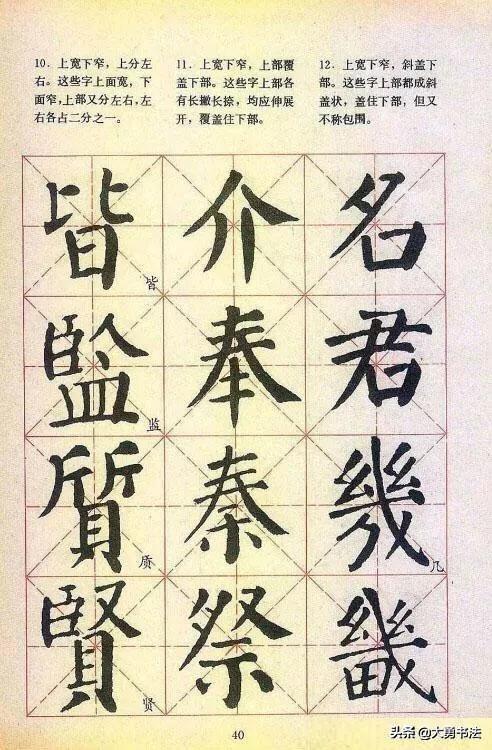 10．上宽下窄，上分左
右。这些字上面宽，下
面窄，上部又分左右，左
右各占二分之一。
11．上宽下窄，上部覆
盖下部。这些字上部各
有长撇长捺，均应伸展
开，覆盖住下部。
12．上宽下窄，斜盖下
部。这些字上部都成斜
盖状，盖住下部，但又
不称包围。
皆 皆
監 监
質 质
賢 贤
介
奉
秦
祭
名
君
幾 几
畿
40
头条 @大勇书法